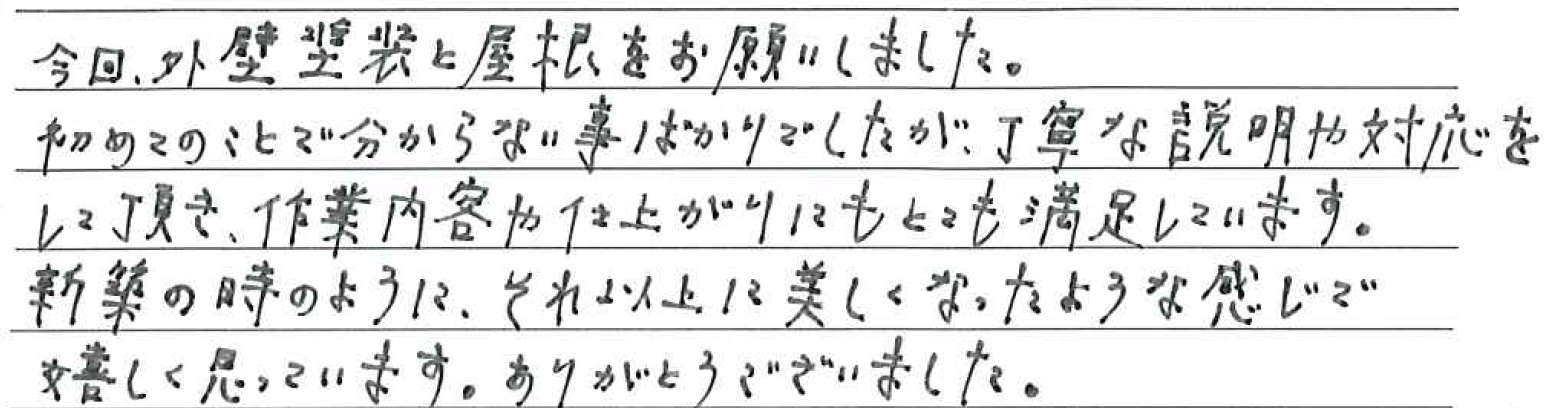 今回、外壁塗装と屋根をお願いしました。
初めてのことで分からない事ばかりでしたが、丁寧な説明や対応を
して頂き、作業内容や仕上がりにもとても満足しています。
新築の時のように、それ以上に美しくなったような感じで
嬉しく思っています。ありがとうございました。